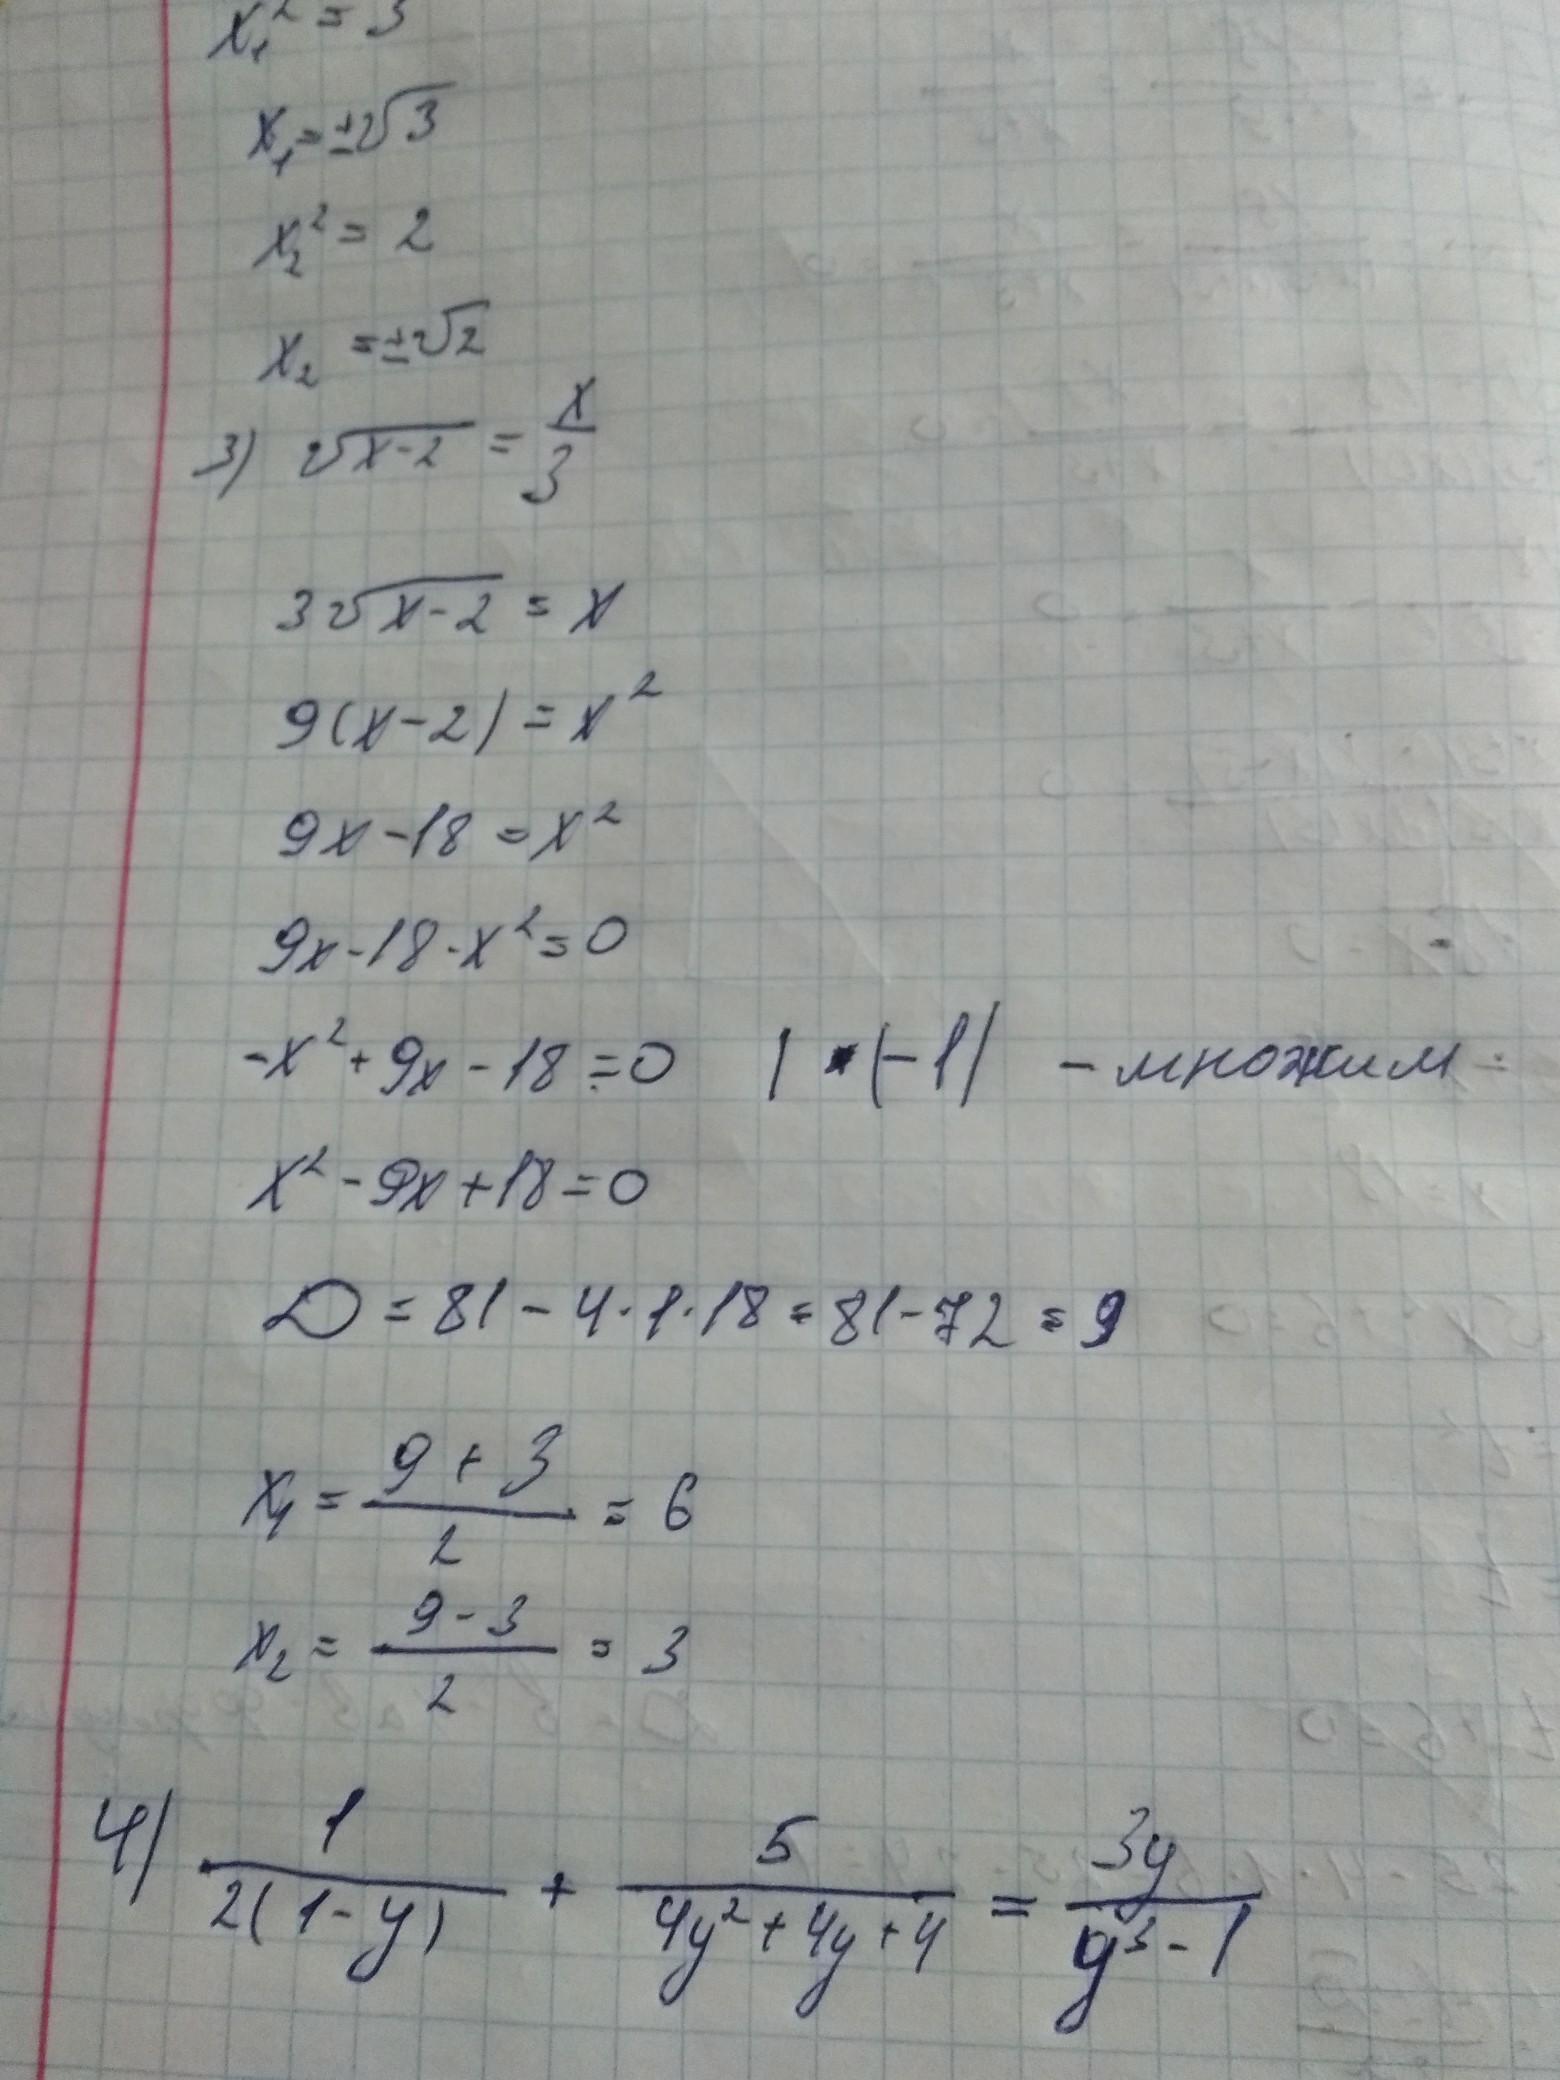 x₁² = 3
x₁ = ±√3
x₂² = 2
x₂ = ±√2
3) √(x-2) = x/3
3√(x-2) = x
9(x-2) = x²
9x-18 = x²
9x-18-x² = 0
-x²+9x-18 = 0 | •(-1) - множим
x²-9x+18 = 0
D = 81-4·1·18 = 81-72 = 9
x₁ = (9+3)/2 = 6
x₂ = (9-3)/2 = 3
4) 1/(2(1-y)) + 5/(4y²+4y+4) = 3y/(y³-1)